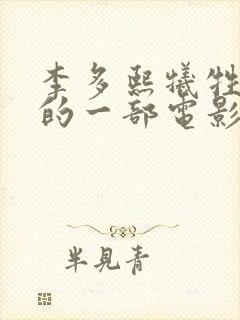 李多熙犧牲
的一部電影
半見青